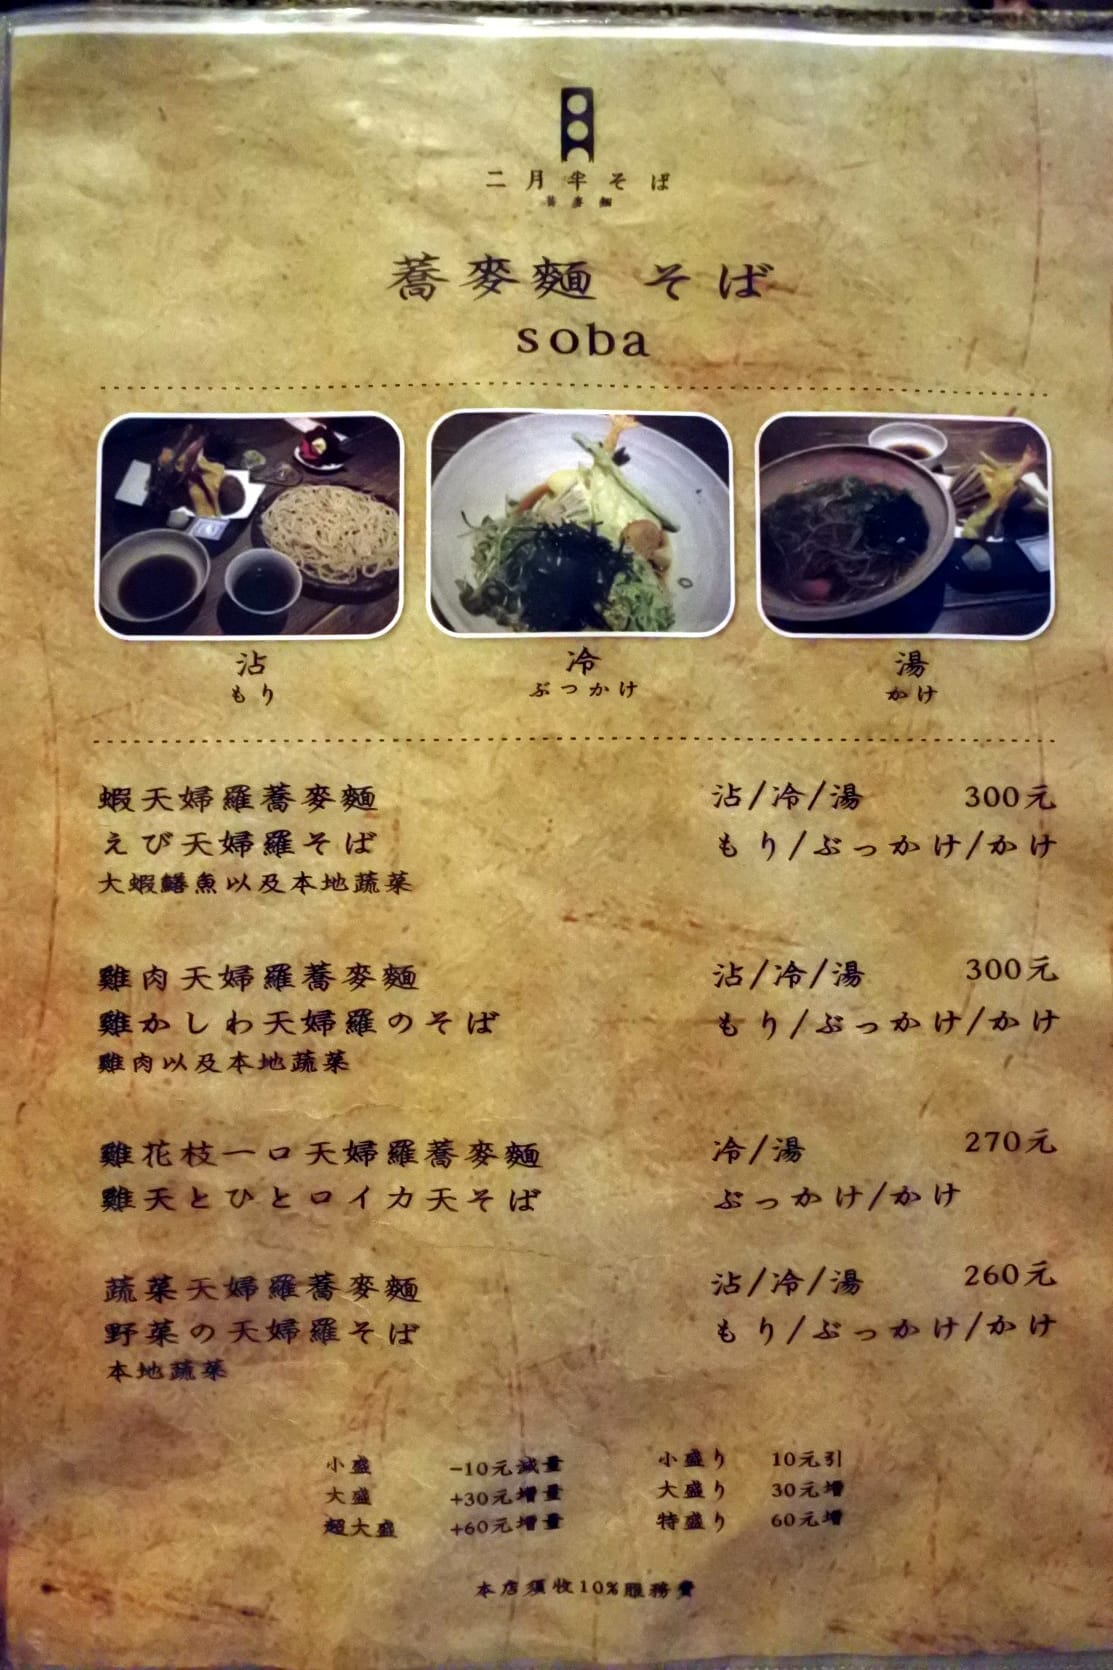 二月半そば
蕎麥麵
蕎麥麵 そば
soba
沾
もり
冷
ぶっかけ
湯
かけ
蝦天婦羅蕎麥麵 沾/冷/湯 300元
えび天婦羅そば もり/ぶっかけ/かけ
大蝦鱔魚以及本地蔬菜
雞肉天婦羅蕎麥麵 沾/冷/湯 300元
雞かしわ天婦羅のそば もり/ぶっかけ/かけ
雞肉以及本地蔬菜
雞花枝一口天婦羅蕎麥麵 冷/湯 270元
雞天とひと口イカ天そば ぶっかけ/かけ
蔬菜天婦羅蕎麥麵 沾/冷/湯 260元
野菜の天婦羅そば もり/ぶっかけ/かけ
本地蔬菜
小盛 -10元減量 小盛り 10元引
大盛 +30元增量 大盛り 30元增
超大盛 +60元增量 特盛り 60元增
本店須收10%服務費